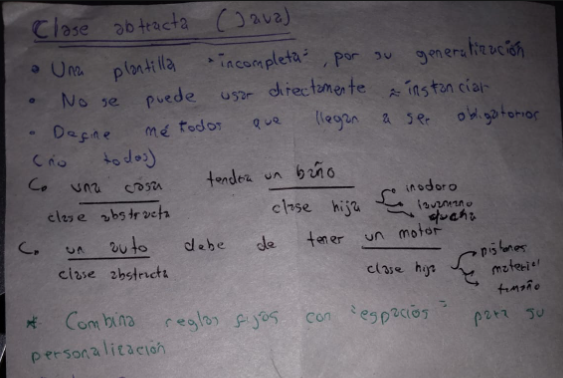 Clase abtracta (Java)
• Una plantilla "incompleta", por su generalización
• No se puede usar directamente = instanciar
• Define métodos que llegan a ser obligatorios
(no todos)
una casa tendra un baño
clase abstracta clase hija
inodoro
lavamano
ducha
un auto debe de tener un motor
clase abstracta clase hija
pistones
material
tamaño
* Combina reglas fijas con "espacios" para su
personalización